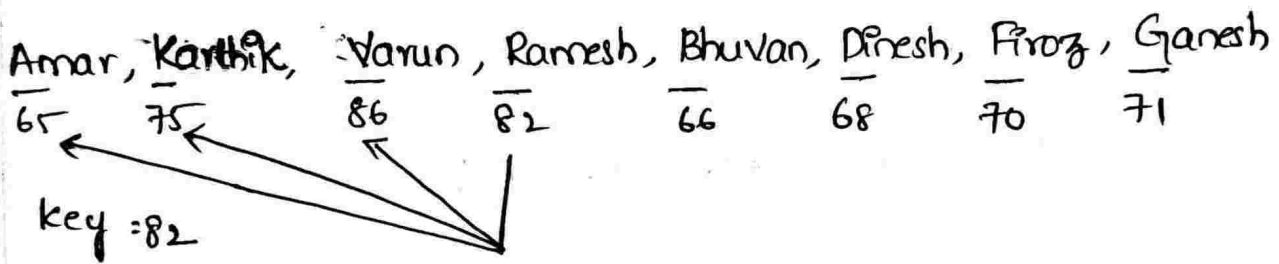 Amar, Karthik, Varun, Ramesh, Bhuvan, Dinesh, Firoz, Ganesh
65 75 86 82 66 68 70 71
key =82